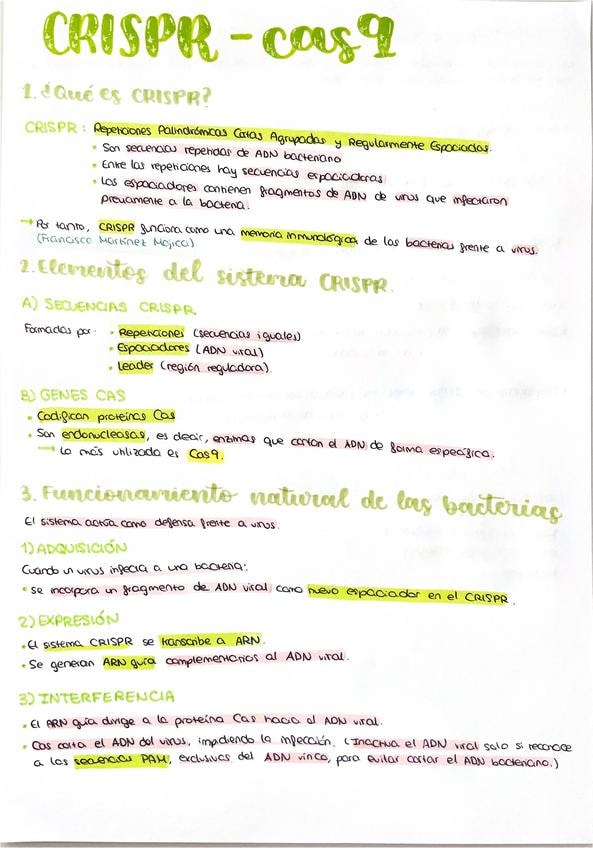 CRISPR - cas9
1. ¿Qué es CRISPR?
CRISPR: Repeticiones Palindrómicas Cortas Agrupadas y Regularmente Espaciadas.
• Son secuencias repetidas de ADN bacteriano
• Entre las repeticiones hay secuencias espaciadoras
• Los espaciadores contienen fragmentos de ADN de virus que infectaron
previamente a la bacteria.
→ Por tanto, CRISPR funciona como una memoria inmunológica de las bacterias frente a virus.
(Francisco Martínez Mojica)
2. Elementos del sistema CRISPR.
A) SECUENCIAS CRISPR.
Formadas por: • Repeticiones (secuencias iguales)
• Espaciadores (ADN viral)
• Leader (región reguladora)
B) GENES CAS
• Codifican proteínas Cas
• Son endonucleasas, es decir, enzimas que cortan el ADN de forma específica.
→ La más utilizada es Cas9.
3. Funcionamiento natural de las bacterias
El sistema actúa como defensa frente a virus.
1) ADQUISICIÓN
Cuando un virus infecta a una bacteria:
• Se incorpora un fragmento de ADN viral como nuevo espaciador en el CRISPR.
2) EXPRESIÓN
• El sistema CRISPR se transcribe a ARN.
• Se generan ARN guía complementarios al ADN viral.
3) INTERFERENCIA
• El ARN guía dirige a la proteína Cas hacia al ADN viral.
• Cas corta el ADN del virus, impidiendo la infección. (Inactiva el ADN viral solo si reconoce
a las secuencias PAM, exclusivas del ADN vírico, para evitar cortar el ADN bacteriano.)